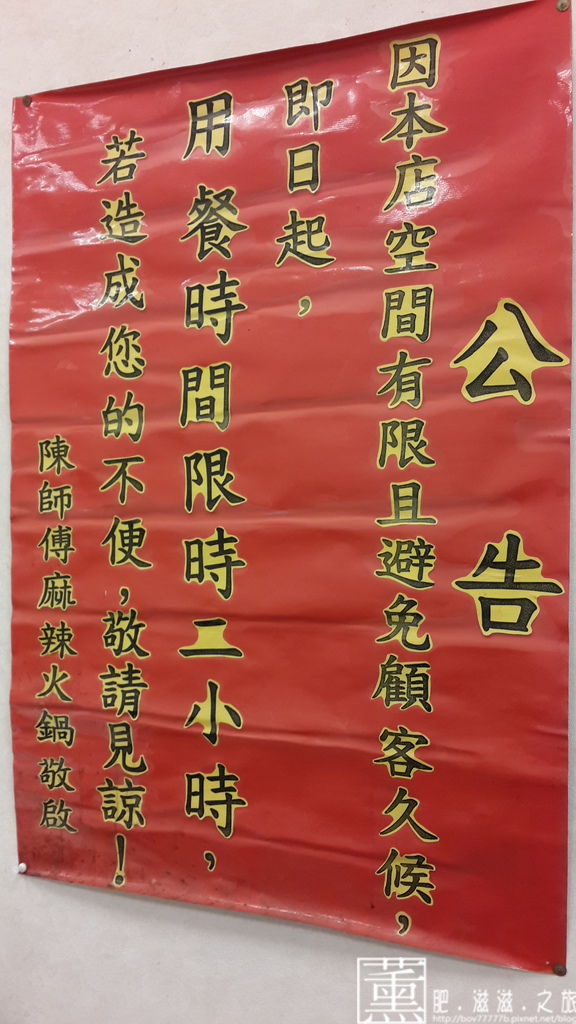 公告
因本店空間有限且避免顧客久候，
即日起，
用餐時間限時二小時，
若造成您的不便，敬請見諒！
陳師傅麻辣火鍋敬啟
薰
肥.滋滋.之旅
http://bov77777b.pixnet.net/blog